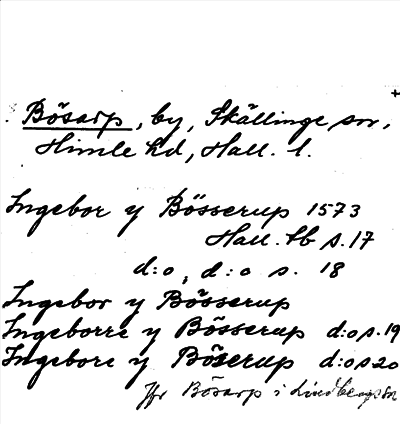 Bösarp, by, Skällinge sn,
Himle hd, Hall. l.
Ingebor y Bösserup 1573
Hall. tb s. 17
d:o, d:o s. 18
Ingebor y Bösserup
Ingeborre y Bösserup d:o s. 19
Ingebore y Böserup d:o s 20
Jfr Bösarp i Lindberg sn